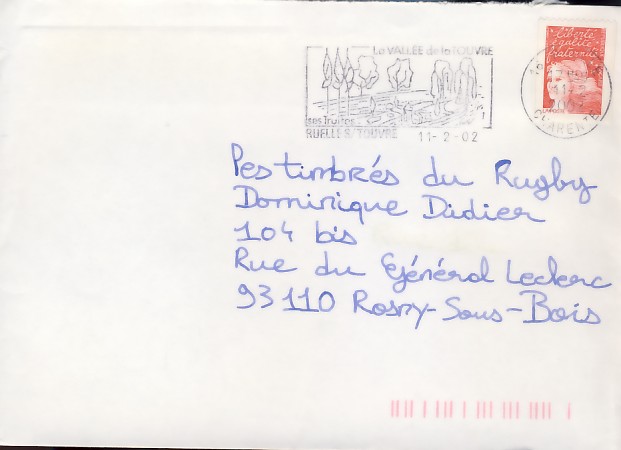 La VALLÉE de la TOUVRE
liberté
égalité
fraternité
ses Truites
RUELLE S/TOUVRE 11-2-02
Pestimbrés du Rugby
Dominique Didier
104 bis
Rue du Général Leclerc
93110 Rosny-Sous-Bois